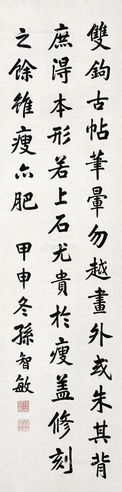 雙鉤古帖筆暈勿越畫外或朱其背
庶得本形若上石尤貴於瘦蓋修刻
之餘雖瘦亦肥
甲申冬孫智敏